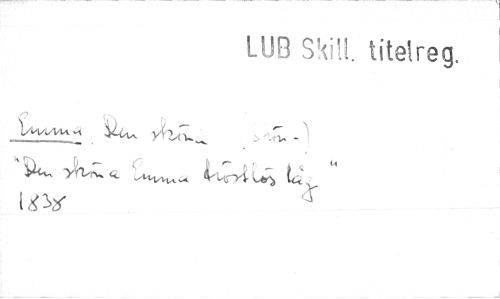 LUB Skill. titelreg.
Emma, Den sköna (Skön-)
"Den sköna Emma tröstlös låg"
1838